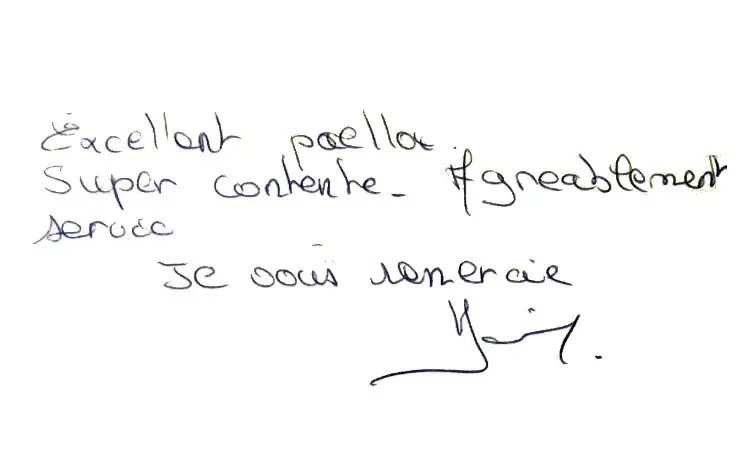 Excellent paella.
Super contente - Agreablement
service
Je vous remercie